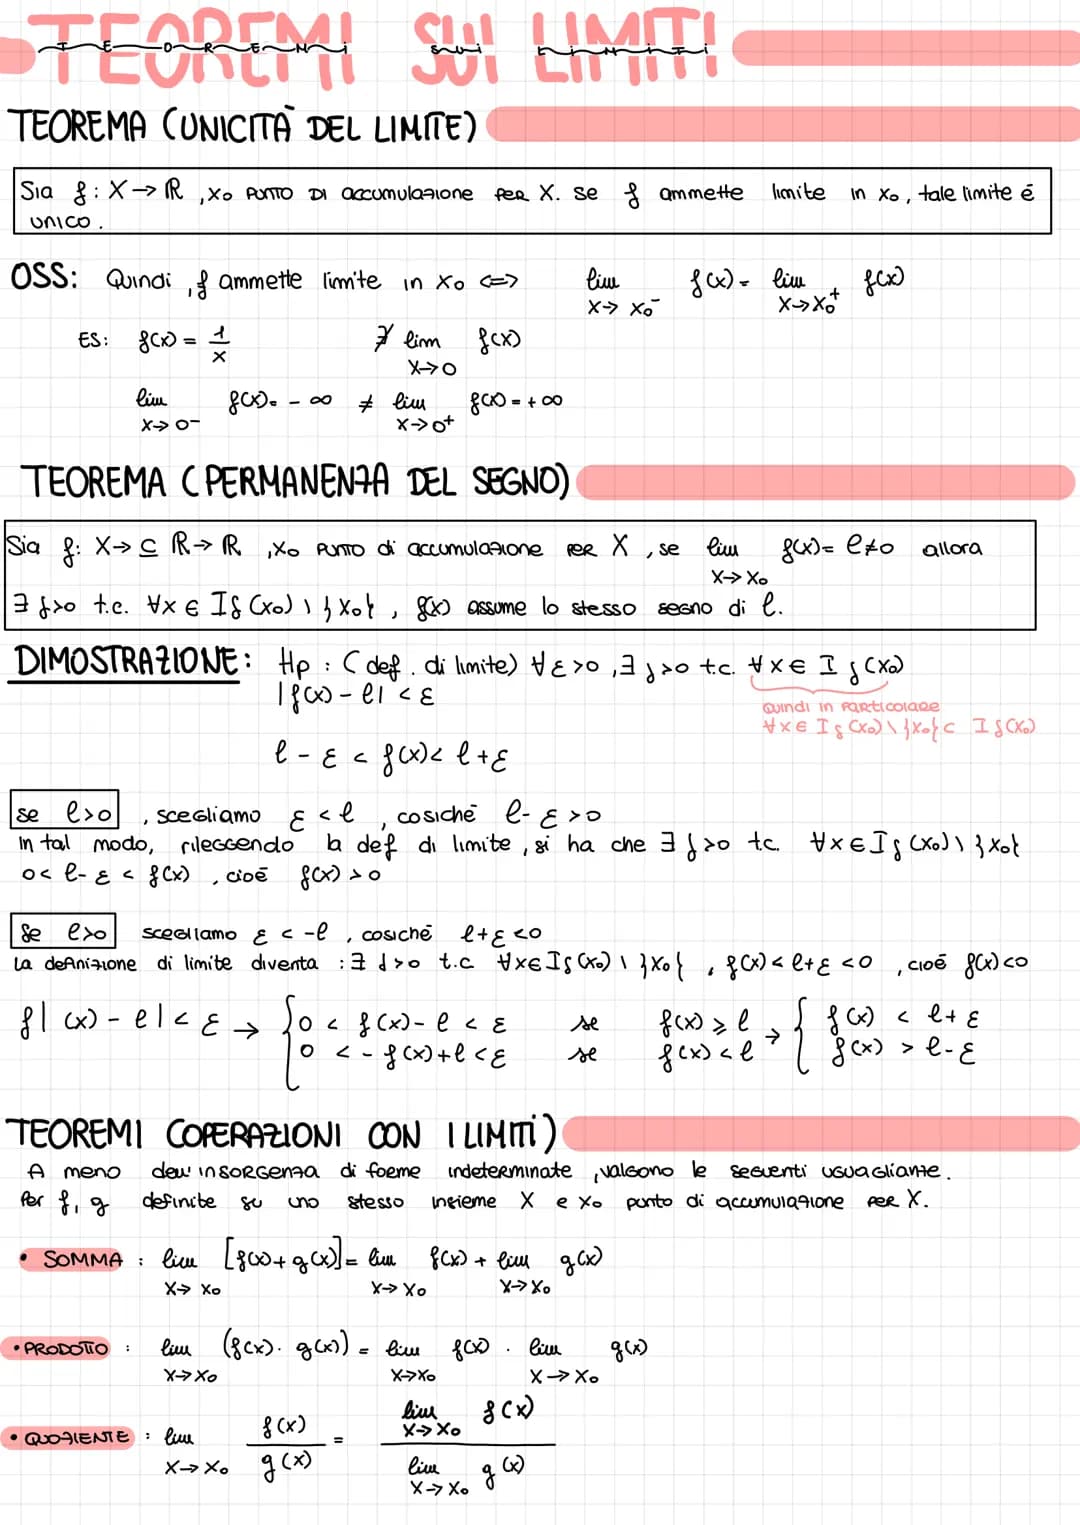 TEOREMI SUI LIMITI
TEOREMI SUI LIMITI
TEOREMA (UNICITÀ DEL LIMITE)
Sia f: X → ℝ, x₀ PUNTO DI accumulazione PER X. se f ammette limite in x₀, tale limite é
unico.
OSS: Quindi, f ammette limite in x₀ <=> lim f(x) = lim f(x)
x→x₀⁻ x→x₀⁺
ES: f(x) = 1/x ∄ lim f(x)
x→0
lim f(x) = -∞ ≠ lim f(x) = +∞
x→0⁻ x→0⁺
TEOREMA (PERMANENZA DEL SEGNO)
Sia f: X→ ⊆ ℝ → ℝ, x₀ PUNTO di accumulazione PER X, se lim f(x) = l≠0 allora
x→x₀
∃ δ>0 t.c. ∀x ∈ Iδ(x₀) \ {x₀}, f(x) assume lo stesso segno di l.
DIMOSTRAZIONE: Hp: (def. di limite) ∀ε>0, ∃δ>0 t.c. ∀x ∈ Iδ(x₀)
|f(x) - l| < ε
quindi in particolare
∀x ∈ Iδ(x₀) \ {x₀} ⊂ Iδ(x₀)
l - ε < f(x) < l + ε
se l>0, scegliamo ε < l, cosiché l - ε > 0
in tal modo, rileggendo la def di limite, si ha che ∃δ>0 t.c. ∀x ∈ Iδ(x₀) \ {x₀}
0 < l - ε < f(x), cioé f(x) > 0
se l>0 scegliamo ε < -l, cosiché l+ε <0
La definizione di limite diventa: ∃δ>0 t.c ∀x∈Iδ(x₀) \ {x₀}, f(x) < l+ε <0, cioé f(x)<0
f|(x) - l| < ε → { 0 < f(x) - l < ε se f(x) ⩾ l → { f(x) < l + ε
0 < -f(x) + l < ε se f(x) < l f(x) > l - ε
TEOREMI (OPERAZIONI CON I LIMITI)
A meno dell'insorgenza di forme indeterminate, valgono le seguenti uguaglianze.
Per f, g definite su uno stesso insieme X e x₀ punto di accumulazione PER X.
• SOMMA: lim [f(x) + g(x)] = lim f(x) + lim g(x)
x→x₀ x→x₀ x→x₀
• PRODOTTO: lim (f(x) · g(x)) = lim f(x) · lim g(x)
x→x₀ x→x₀ x→x₀
lim f(x)
x→x₀
• QUOZIENTE: lim f(x)/g(x) =
x→x₀
lim g(x)
x→x₀